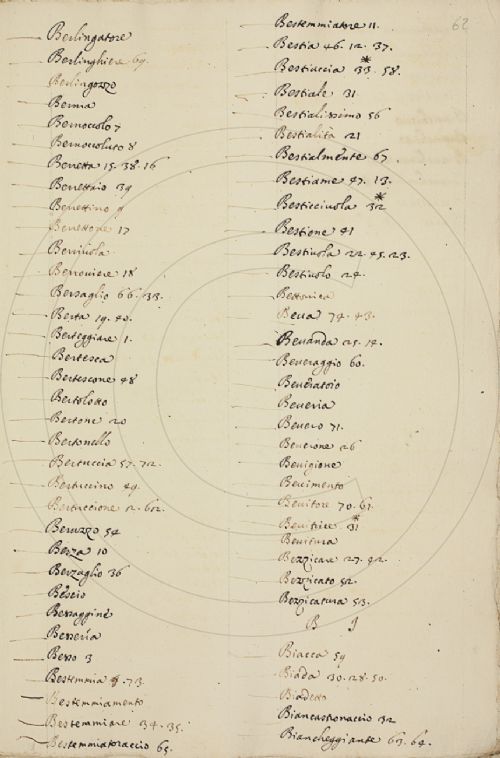 62
Berlingatore
Berlinghiere 69.
Berlingozzo
Bernia
Bernoccolo 7
Bernoccoluto 8
Berretta 15. 38. 16
Berrettaio 39
Berrettino 9
Berrettone 17
Berriuola
Berroviere 18
Bersaglio 66. 33.
Berta 19. 40.
Berteggiare 1.
Bertesca
Bertescone 48
Bertolotto
Bertone 20
Bertonello
Bertuccia 57. 72.
Bertuccino 49.
Bertuccione 2. 62.
Beruzzo 54
Berza 10
Berzaglio 36
Bescio
Bessaggine
Besseria
Besso 3
Bestemmia 9. 73.
Bestemmiamento
Bestemmiare 34. 35.
Bestemmiatoraccio 65.
Bestemmiatore 11.
Bestia 46. 12. 37.
Bestiaccia 33. 58.
Bestiale 31
Bestialissimo 56
Bestialità 21
Bestialmente 67
Bestiame 47. 13.
Besticciuola 32
Bestione 41
Bestiuola 22. 45. 23.
Bestiuolo 24.
Bettonica
Beva 74. 43.
Bevanda 25. 14.
Beveraggio 60.
Beveratoio
Beveria
Bevero 71.
Beverone 26
Bevigione
Bevimento
Bevitore 70. 61.
Bevitrice 31
Bevitura
Bezzicare 27. 42.
Bezzicato 52.
Bezzicatura 53.
B I
Biacca 59
Biada 30. 28. 50.
Biadetto
Biancastronaccio 32
Biancheggiante 63. 64.